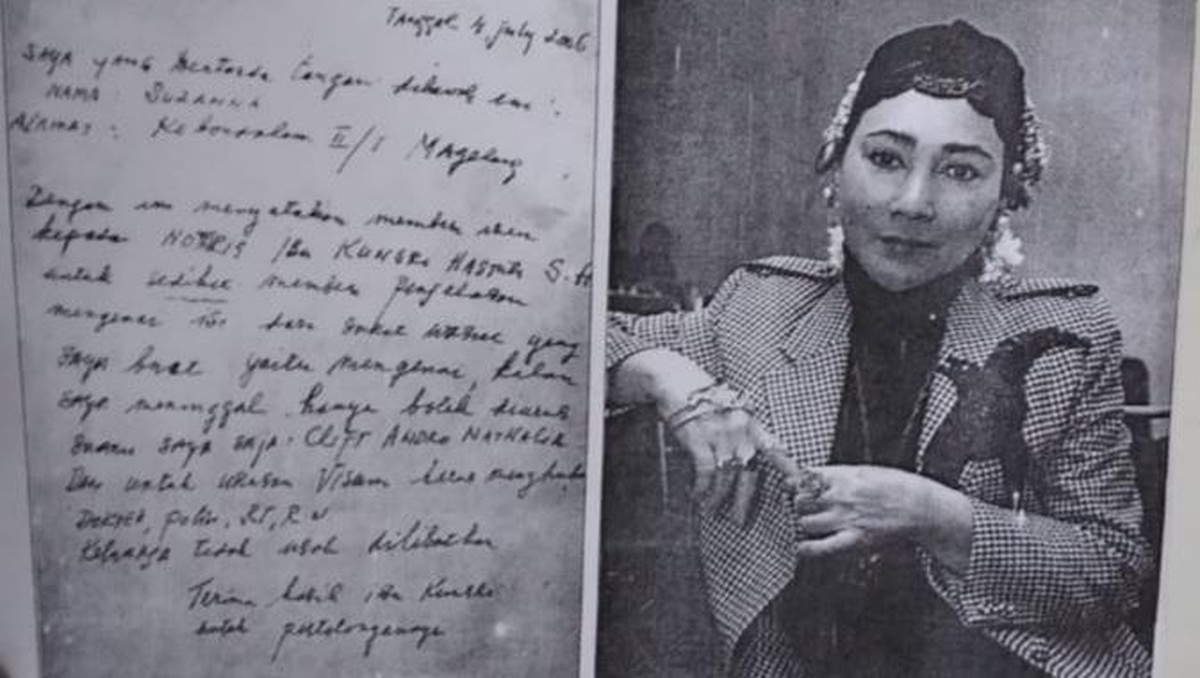 Tanggal 4 july 2006
SAYA yang bertanda tangan dibawah ini :
NAMA : SUZANNA
ALAMAT : Kebondalem II/1 Magelang
Dengan ini menyatakan memberi
kepada NOTRIS Ibu KUNSRI HASTUTI S.H
untuk sedikit memberi penjelasan
mengenai isi dari surat yang
saya buat yaitu mengenai, kalau
saya meninggal hanya boleh
suami saya saja : CLIFT ANDRO NATHALIA
Dan untuk Visum
DOKTER, polisi, RT, RW
Keluarga tidak usah dilibatkan
Terima kasih ibu Kunsri
untuk pertolongannya